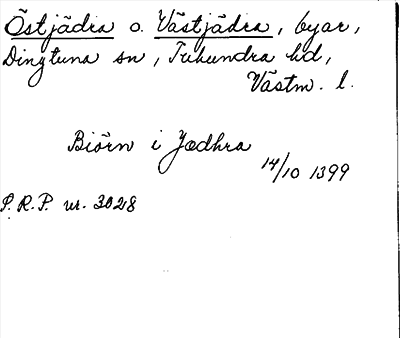 Östjädra o. Västjädra, byar,
Dingtuna sn, Tuhundra hd,
Västm. l.
Biörn i Jædhra
14/10 1399
P.R.P. nr. 3028